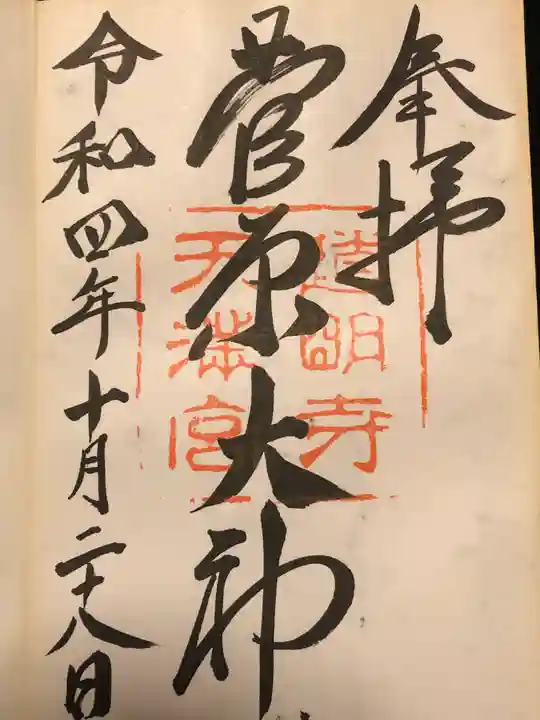 奉拝
菅原大神
令和四年十月二十八日
道明寺
天満宮